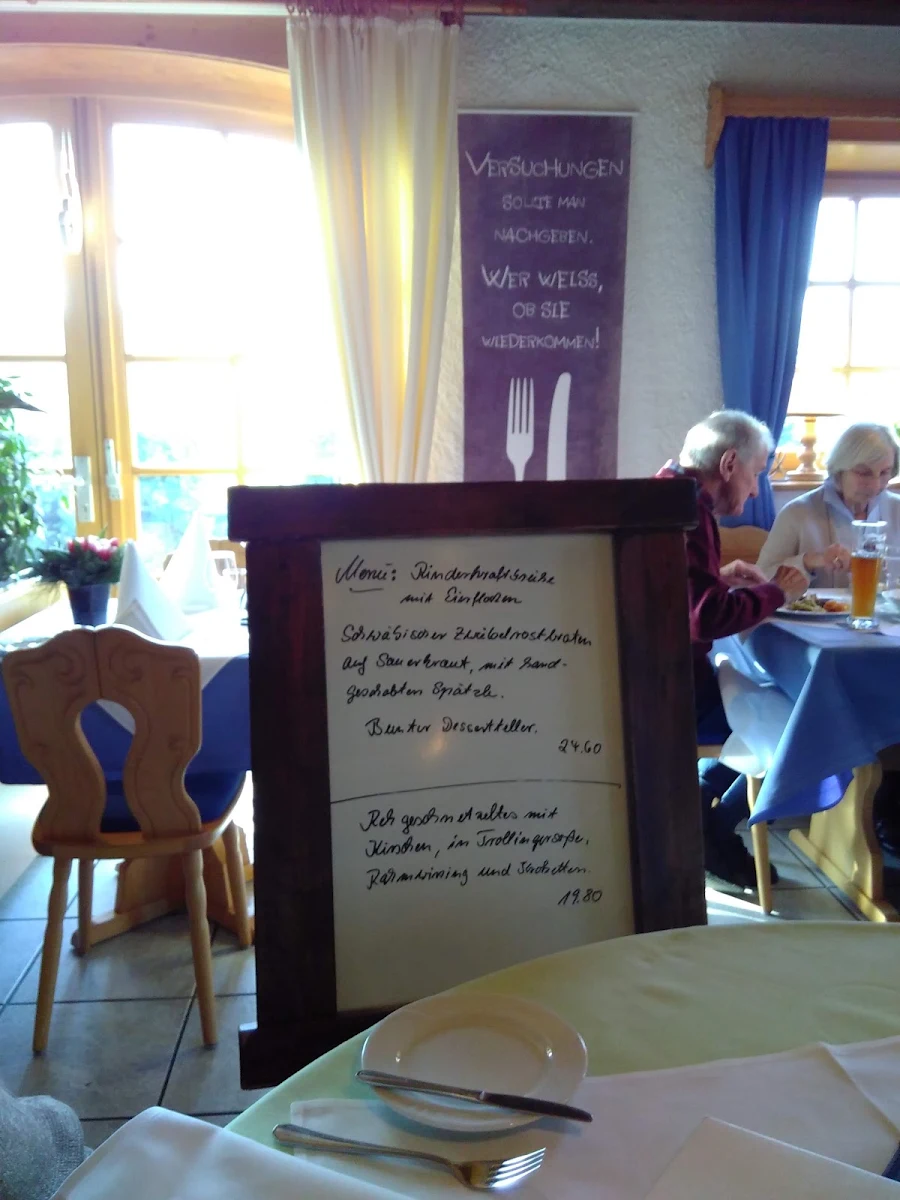 VERSUCHUNGEN
SOLLTE MAN
NACHGEBEN.
WER WEISS,
OB SIE
WIEDERKOMMEN!
Menü: Rinderkraftbrühe
mit Eierflocken
Schwäbischer Zwiebelrostbraten
auf Sauerkraut, mit hand-
geschabten Spätzle.
Bunter Dessertteller.
24.60
Reh geschnetzeltes mit
Kirschen, in Trollingersoße,
Rahmwirsing und Kroketten.
19.80